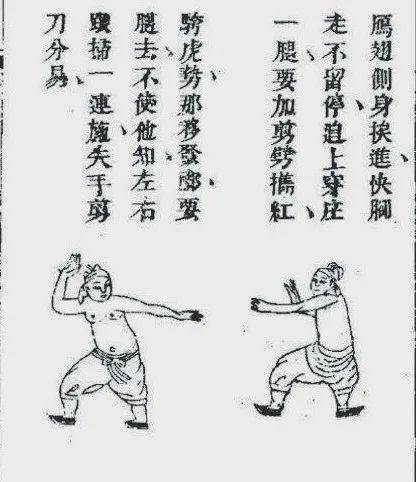 鴈翅側身挨進、快腳
走不留停、追上穿庄
一腿要加剪劈推紅、
跨虎勢、那移發腳、要
腿去、不使他知、左右
跟掃一連施、失手剪
刀分易、